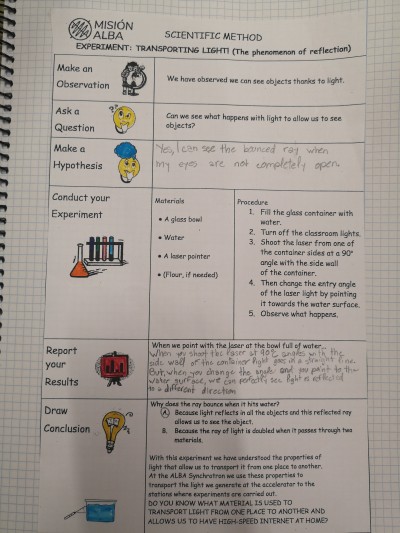 MISIÓN
ALBA
SCIENTIFIC METHOD
EXPERIMENT: TRANSPORTING LIGHT! (The phenomenon of reflection)
Make an
Observation
We have observed we can see objects thanks to light.
Ask a
Question
Can we see what happens with light to allow us to see
objects?
Make a
Hypothesis
Yes, I can see the bounced ray when
my eyes are not completely open.
Conduct your
Experiment
Materials
• A glass bowl
• Water
• A laser pointer
• (Flour, if needed)
Procedure
1. Fill the glass container with
water.
2. Turn off the classroom lights.
3. Shoot the laser from one of
the container sides at a 90°
angle with the side wall
of the container.
4. Then change the entry angle
of the laser light by pointing
it towards the water surface.
5. Observe what happens.
Report
your
Results
When we point with the laser at the bowl full of water...
When you shoot the laser at 90º angles with the
side wall of the container light goes in a straight line.
But, when you change the angle and you point to the
water surface, we can perfectly see light is reflected
to a different direction
Draw
Conclusion
Why does the ray bounce when it hits water?
A. Because light reflects in all the objects and this reflected ray
allows us to see the object.
B. Because the ray of light is doubled when it passes through two
materials.
With this experiment we have understood the properties of
light that allow us to transport it from one place to another.
At the ALBA Synchrotron we use these properties to
transport the light we generate at the accelerator to the
stations where experiments are carried out.
DO YOU KNOW WHAT MATERIAL IS USED TO
TRANSPORT LIGHT FROM ONE PLACE TO ANOTHER AND
ALLOWS US TO HAVE HIGH-SPEED INTERNET AT HOME?